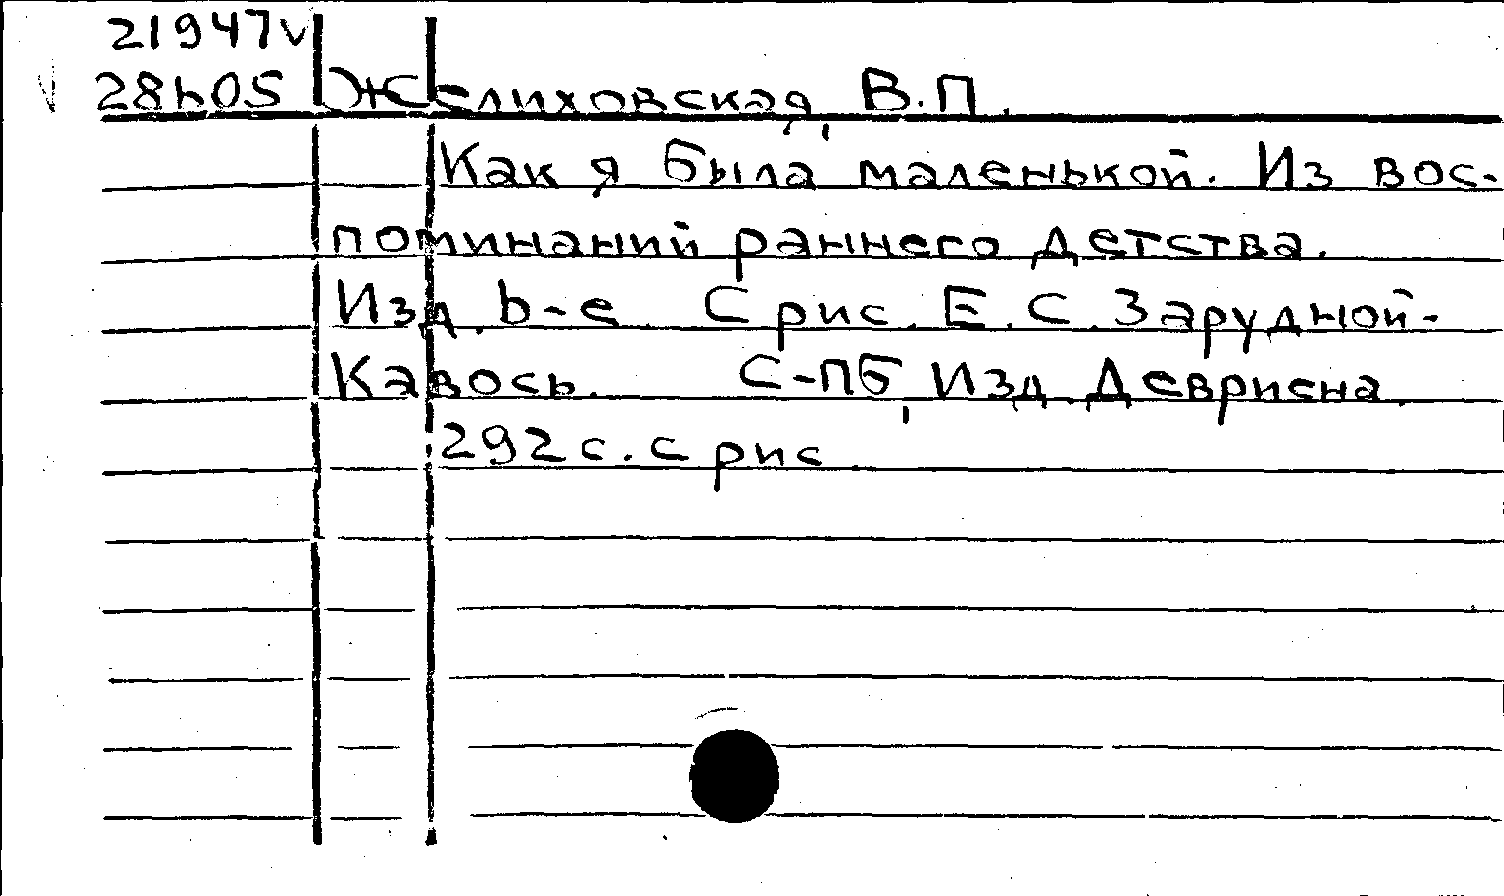 21947v
28h05 Желиховская, В.П.
Как я была маленькой. Из вос-
поминаний раннего детства.
Изд. b-е. С рис. Е.С. Зарудной-
Кавось. С-ПБ, Изд. Девриена.
292 с. с рис.